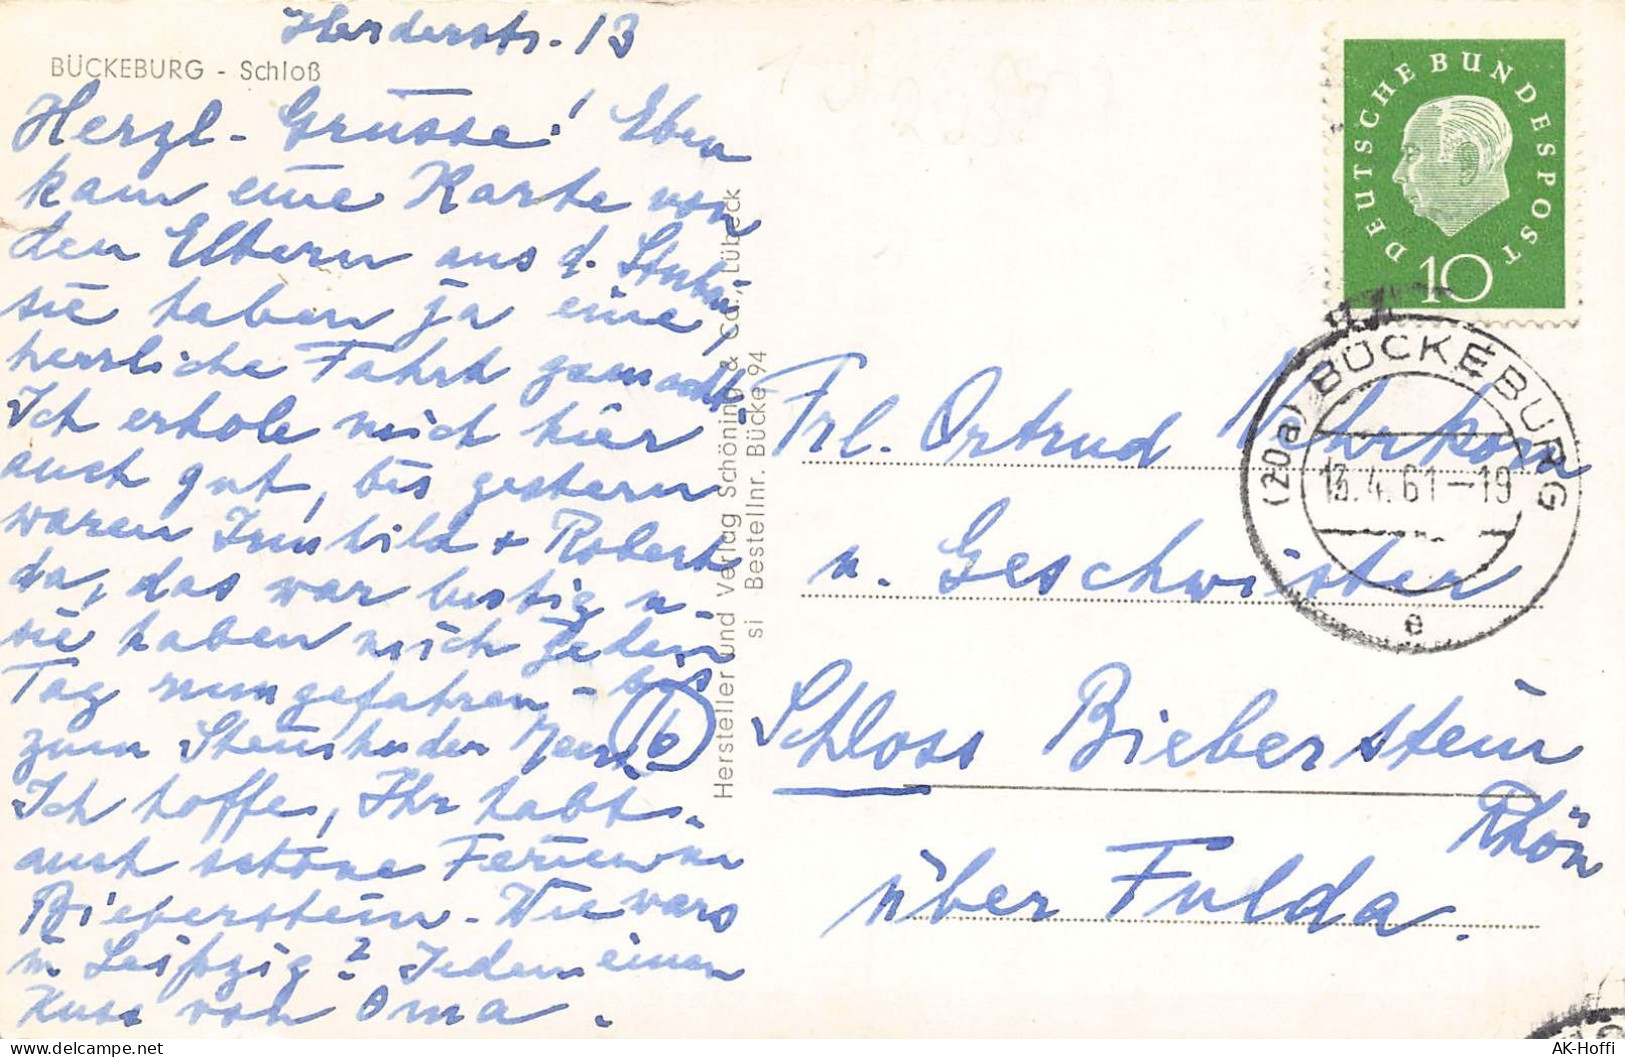 Herderstr. 13
BÜCKEBURG - Schloß
Herzl. Grüsse! Eben
kam eine Karte von
den Eltern aus d. Stuben,
sie haben ja eine
herrliche Fahrt gemacht.
Ich erhole mich hier
auch gut, bis gestern
waren Irmhild + Robert
da, das war lustig u.
sie haben mich jeden
Tag rumgefahren - bis
zum Steinhuder Meer.
Ich hoffe, Ihr habt
auch schöne Ferien in
Bieberstein. Wie wars
in Leipzig? Jedem einen
Kuss von Oma.
Hersteller und Verlag Schöning & Co., Lübeck
si Bestellnr. Bücke 94
b
DEUTSCHE BUNDESPOST
10
(20a) BÜCKEBURG
13.4.61-19
e
Frl. Ortrud Nehrkorn
u. Geschwister
Schloss Bieberstein
Rhön
über Fulda.
AK-Hoffi